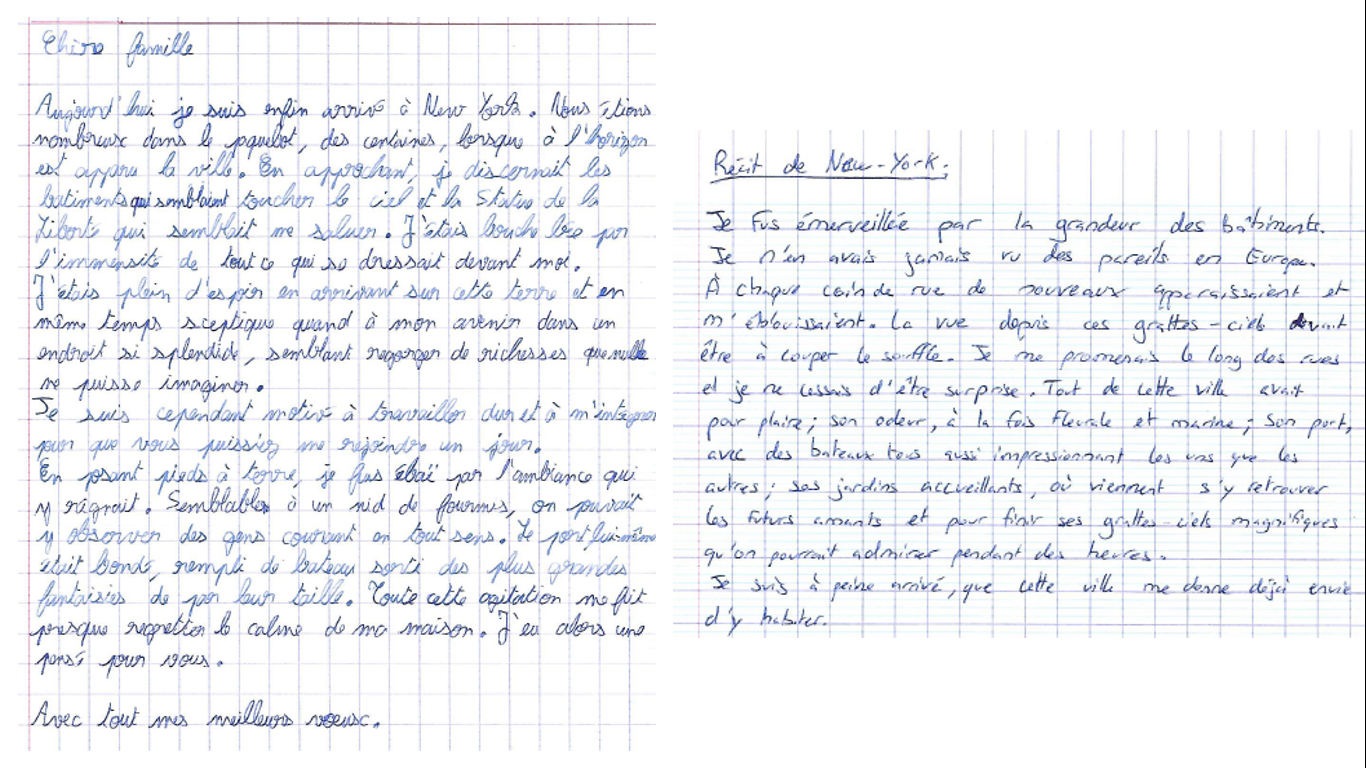 Chère famille
Aujourd'hui je suis enfin arrivé à New York. Nous étions
nombreux dans le paquebot, des centaines, lorsque à l'horizon
est apparu la ville. En approchant, je discernait les
batiments qui semblaient toucher le ciel et la Statue de la
Liberté qui semblait me saluer. J'étais bouche bée par
l'immensité de tout ce qui se dressait devant moi.
J'étais plein d'espoir en arrivant sur cette terre et en
même temps sceptique quand à mon avenir dans un
endroit si splendide, semblant regorger de richesses que nulle
ne puisse imaginer.
Je suis cependant motivé à travailler dur et à m'intégrer
pour que vous puissiez me rejoindre un jour.
En posant pieds à terre, je fus ébaï par l'ambiance qui
y régnait. Semblables à un nid de fourmis, on pouvait
y observer des gens courant en tout sens. Le port lui-même
était bondé, rempli de bateau sorti des plus grandes
fantaisies de par leur taille. Toute cette agitation me fit
presque regretter le calme de ma maison. J'eu alors une
pensé pour vous.
Avec tout mes meilleurs voeux.
Récit de New-York:
Je fus émerveillée par la grandeur des bâtiments.
Je n'en avais jamais vu des pareils en Europe.
À chaque coin de rue de nouveaux apparaissaient et
m'éblouissaient. La vue depuis ces grattes-ciels devait
être à couper le souffle. Je me promenais le long des rues
et je ne cessais d'être surprise. Tout de cette ville avait
pour plaire; son odeur, à la fois fleurale et marine; son port,
avec des bateaux tous aussi impressionnant les uns que les
autres; ses jardins accueillants, où viennent s'y retrouver
les futurs amants et pour finir ses grattes-ciels magnifiques
qu'on pourrait admirer pendant des heures.
Je suis à peine arrivé, que cette ville me donne déjà envie
d'y habiter.